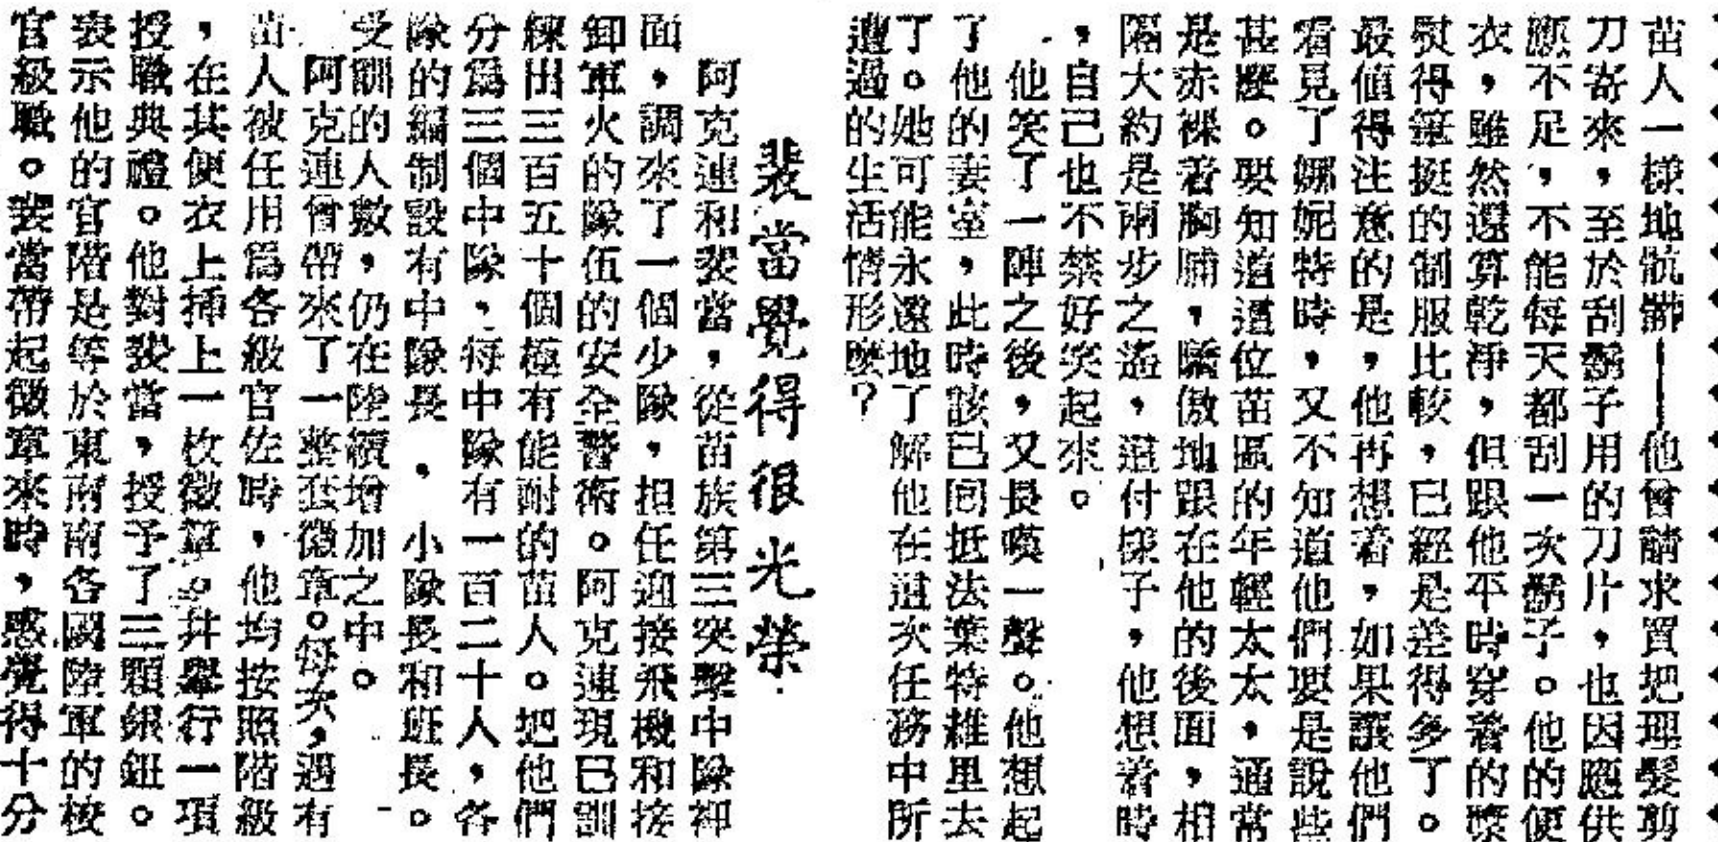 苗人一樣地骯髒——他曾請求買把理髮剪
刀寄來，至於刮鬍子用的刀片，也因應供
應不足，不能每天都刮一次鬍子。他的便
衣，雖然還算乾淨，但跟他平時穿着的漿
熨得筆挺的制服比較，已經是差得多了。
最值得注意的是，他再想着，如果讓他們
看見了娜妮特時，又不知道他們要是說些
甚麼。要知道這位苗區的年輕太太，通常
是赤裸着胸脯，驕傲地跟在他的後面，相
隔大約是兩步之遙，這付樣子，他想着時
，自己也不禁好笑起來。
他笑了一陣之後，又長嘆一聲。他想起
了他的妻室，此時該已回抵法葉特維里去
了。她可能永遠地了解他在這次任務中所
遭遇的生活情形麼？
裴當覺得很光榮
阿克連和裴當，從苗族第三突擊中隊抑
面，調來了一個少隊，担任迎接飛機和接
卸軍火的隊伍的安全警衛。阿克連現已訓
練出三百五十個極有能耐的苗人。把他們
分爲三個中隊，每中隊有一百二十人，各
隊的編制設有中隊長，小隊長和班長。
受訓的人數，仍在陸續增加之中。
阿克連曾帶來了一整套徽章。每次，遇有
苗人被任用爲各級官佐時，他均按照階級
，在其便衣上揷上一枚徽章。幷舉行一項
授職典禮。他對裴當，授予了三顆銀鈕。
表示他的官階是等於東南南各國陸軍的校
官級職。裴當帶起徽章來時，感覺得十分